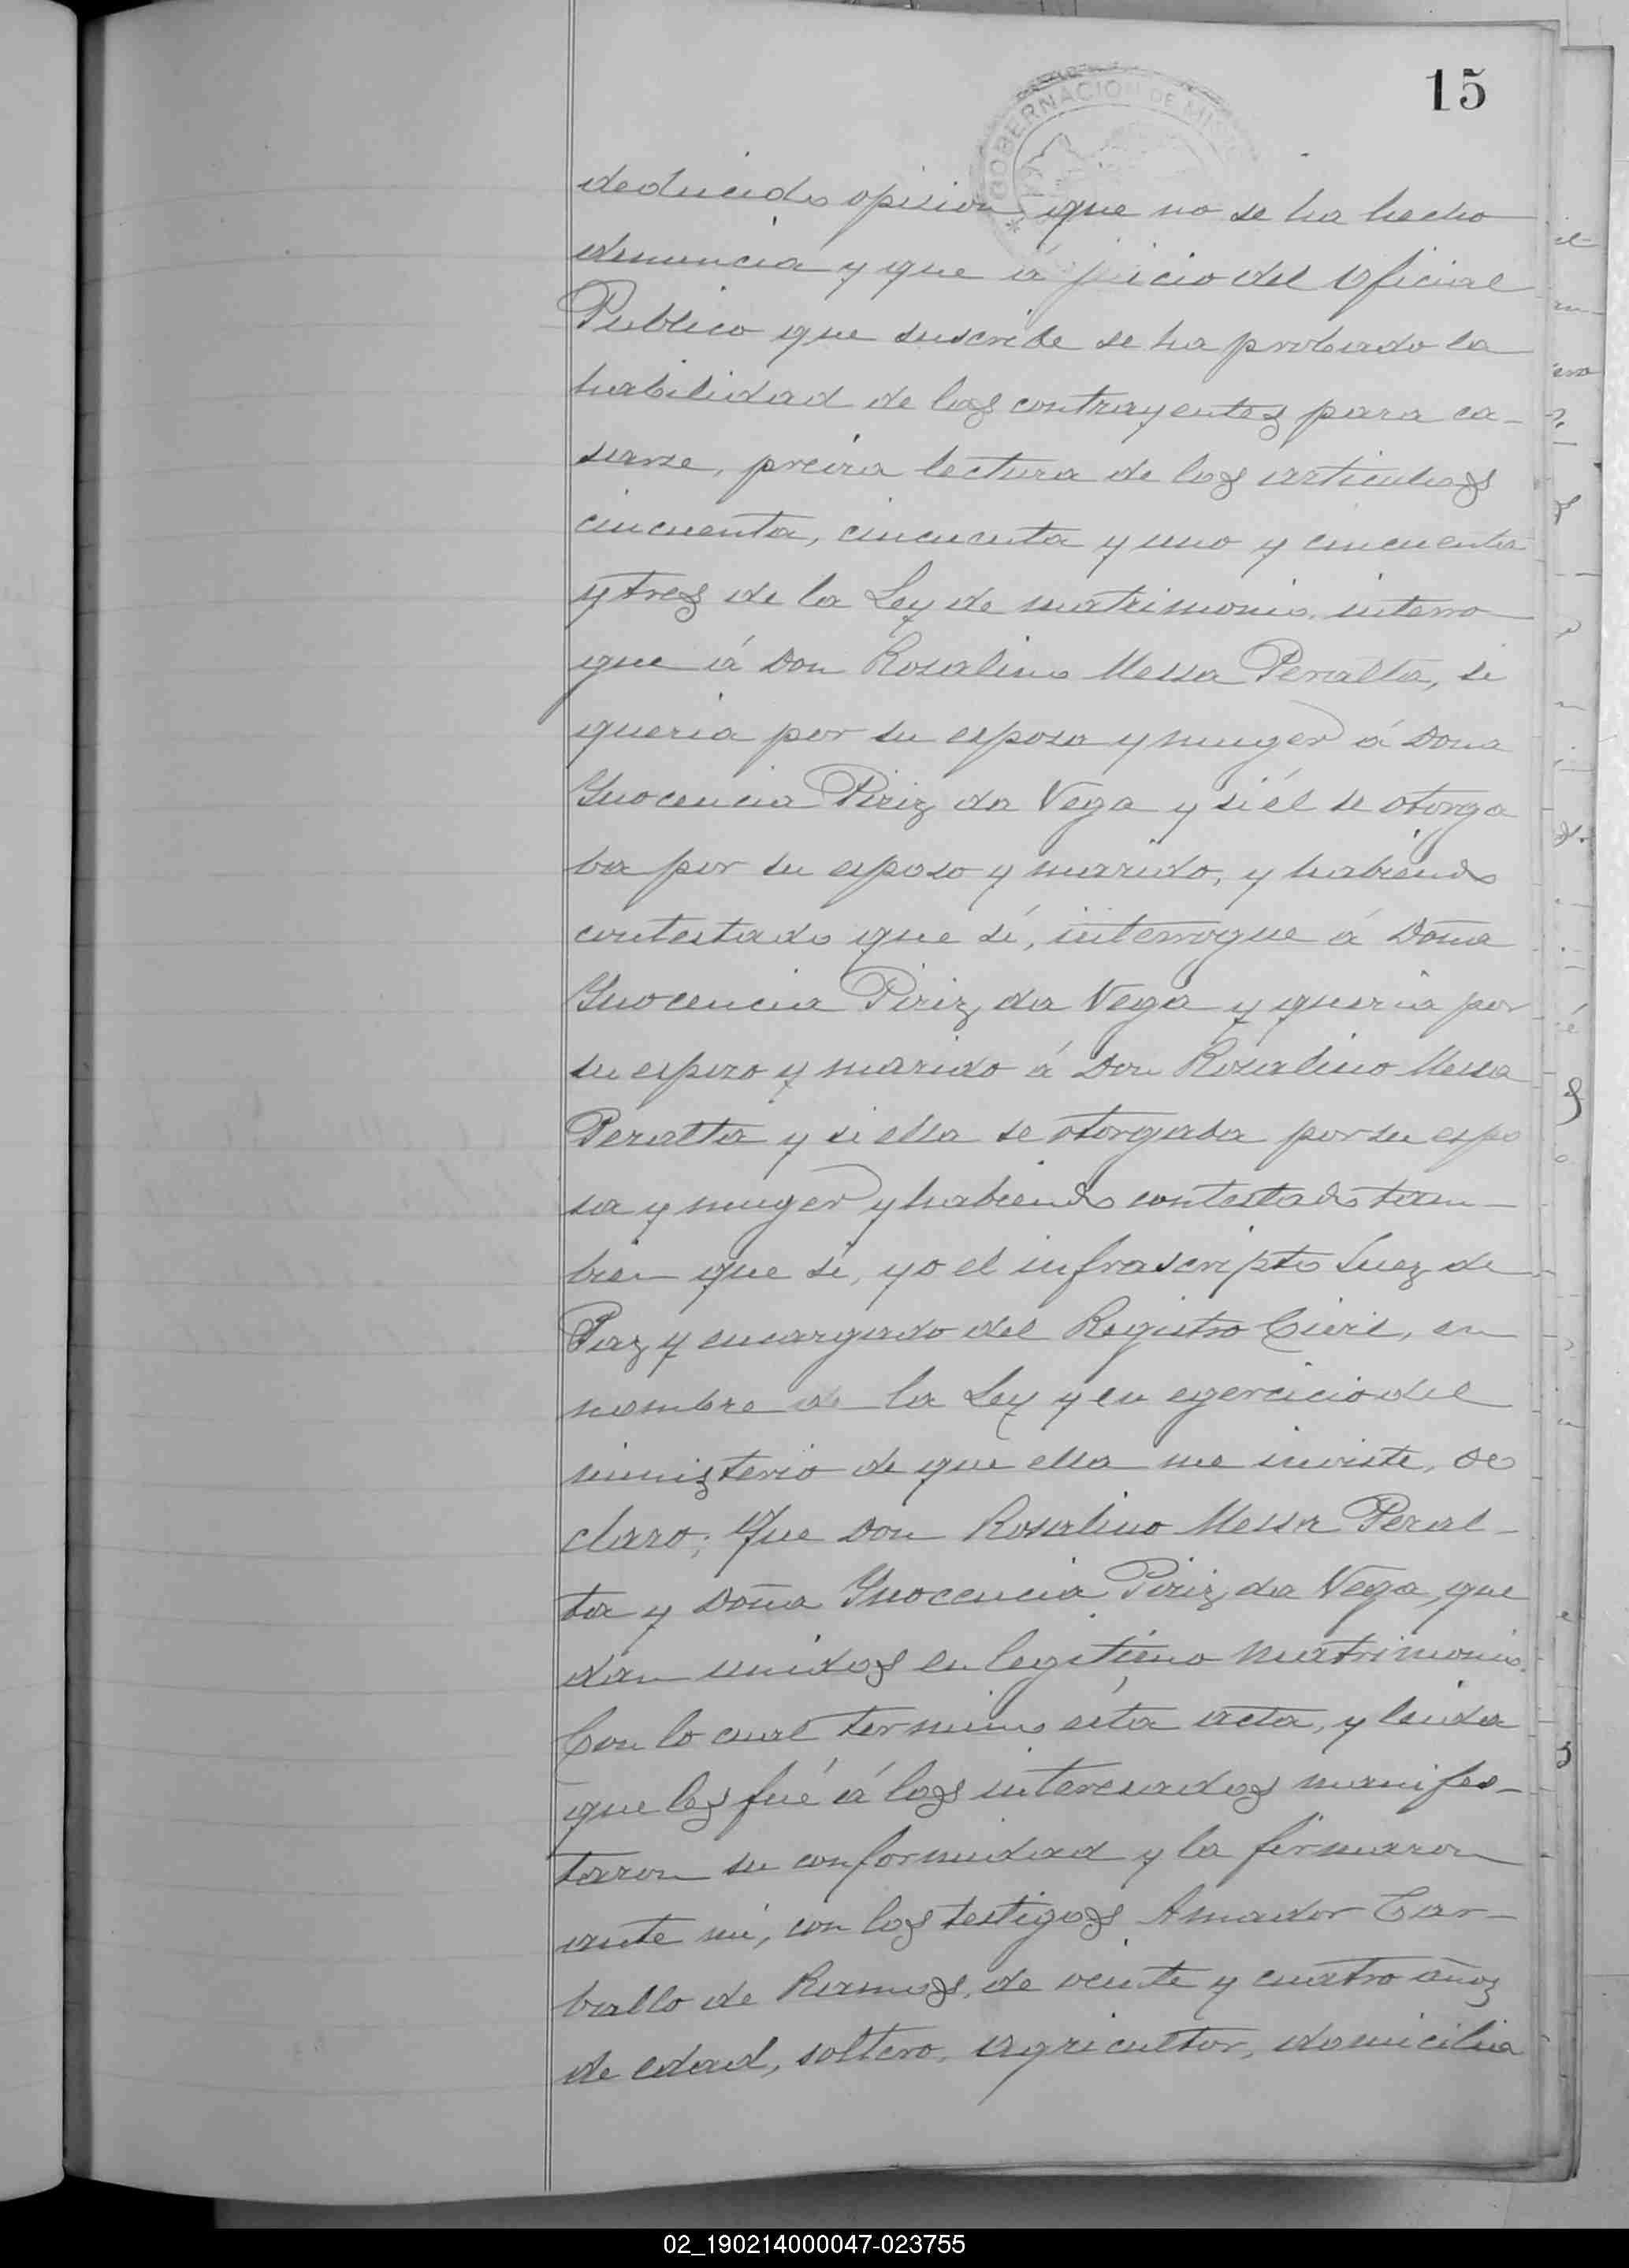 15
GOBERNACION DE MIS
deducido opision, que no se ha hecho
denuncia y que á juicio del Oficial
Publico que suscribe se ha probado la
habilidad de los contrayentes para ca-
sarse, previa lectura de los articulos
cincuenta, cincuenta y uno y cincuenta
y tres de la Ley de matrimonio, interro
gue á Don Rosalino Messa Peralta, si
queria por su esposa y muger á Doña
Ynocencia Piriz da Vega y si él se otorga
ba por su esposo y marido, y habiendo
contestado que sí, interrogue á Doña
Ynocencia Piriz da Vega y queria por
su esposo y marido á Don Rosalino Messa
Peralta y si ella se otorgaba por su espo
sa y muger y habiendo contestado tam-
bien que si, yo el infrascripto Juez de
Paz y encargado del Registro Civil, en
nombre de la Ley y en egercicio del
ministerio de que ella me inviste, de
claro; Que Don Rosalino Messa Peral-
ta y Doña Ynocencia Piriz da Vega, que
dan unidos en legitimo matrimonio.
Con lo cual termino esta acta, y leida
que les fué á los interesados manifes-
taron su conformidad y la firmaron
ante mi, con los testigos Amador Car-
ballo de Ramos, de veinte y cuatro años
de edad, soltero, agricultor, domicilia
02_190214000047-023755